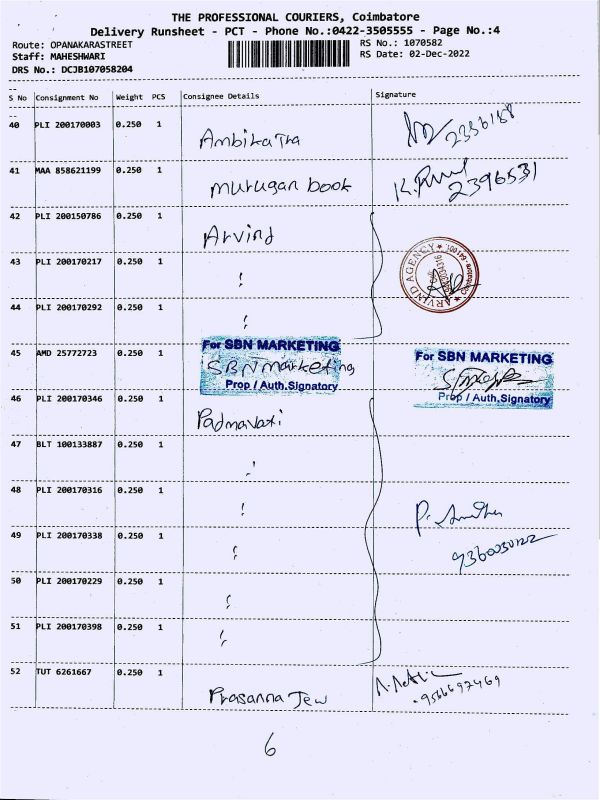 THE PROFESSIONAL COURIERS, Coimbatore
Delivery Runsheet - PCT - Phone No.:0422-3505555 - Page No.:4
Route: OPANAKARASTREET
RS No.: 1070582
Staff: MAHESHWARI
RS Date: 02-Dec-2022
DRS No.: DCJB107058204
S No Consignment No Weight PCS Consignee Details Signature
40 PLI 200170003 0.250 1 2336158
41 MAA 858621199 0.250 1 murugan book 2396531
42 PLI 200150786 0.250 1 Arvind
43 PLI 200170217 0.250 1 "
ARVIND AGENCY
44 PLI 200170292 0.250 1 "
For SBN MARKETING
45 AMD 25772723 0.250 1 SBN marketing
Prop / Auth.Signatory
For SBN MARKETING
Prop / Auth.Signatory
46 PLI 200170346 0.250 1 Padmavati
47 BLT 100133887 0.250 1 "
48 PLI 200170316 0.250 1 "
49 PLI 200170338 0.250 1 "
50 PLI 200170229 0.250 1 "
51 PLI 200170398 0.250 1 "
52 TUT 6261667 0.250 1 Prasanna Jew
6